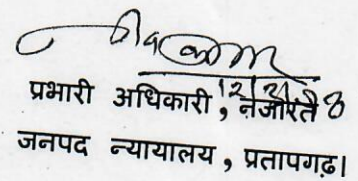 प्रभारी अधिकारी, नजारत
जनपद न्यायालय, प्रतापगढ़।